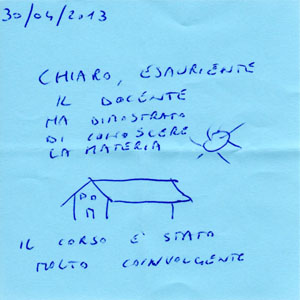 30/04/2013
CHIARO, ESAURIENTE
IL DOCENTE
HA DIMOSTRATO
DI CONOSCERE
LA MATERIA
DO
M
IL CORSO E' STATO
MOLTO COINVOLGENTE